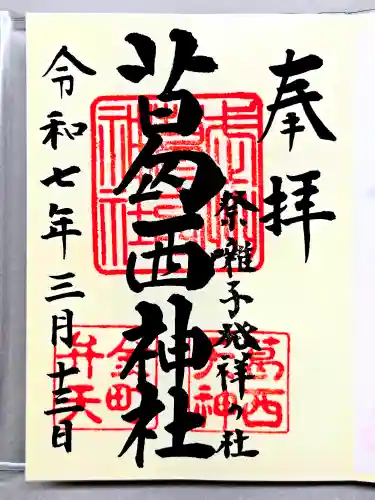 奉拝
祭雛子発祥の社
葛西神社
令和七年三月十三日
葛西神社
葛西
天神
金町
弁天